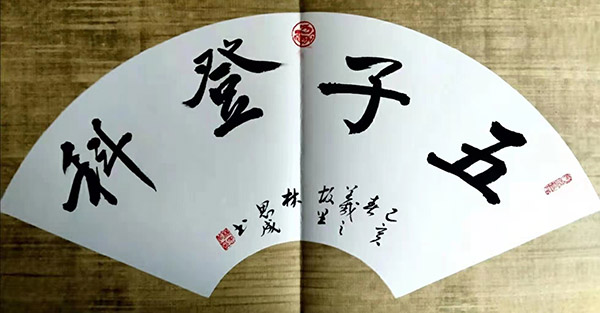 五子登科
己亥
春
羲之
故里
林
思成
书